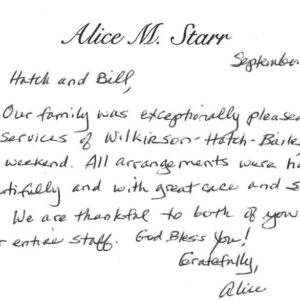 Alice M. Starr
September
Hatch and Bill,
Our family was exceptionally pleased
services of Wilkinson-Hatch-Baile
weekend. All arrangements were ha
tifully and with great care and s
We are thankful to both of you
r entire staff. God Bless You!
Gratefully,
Alice